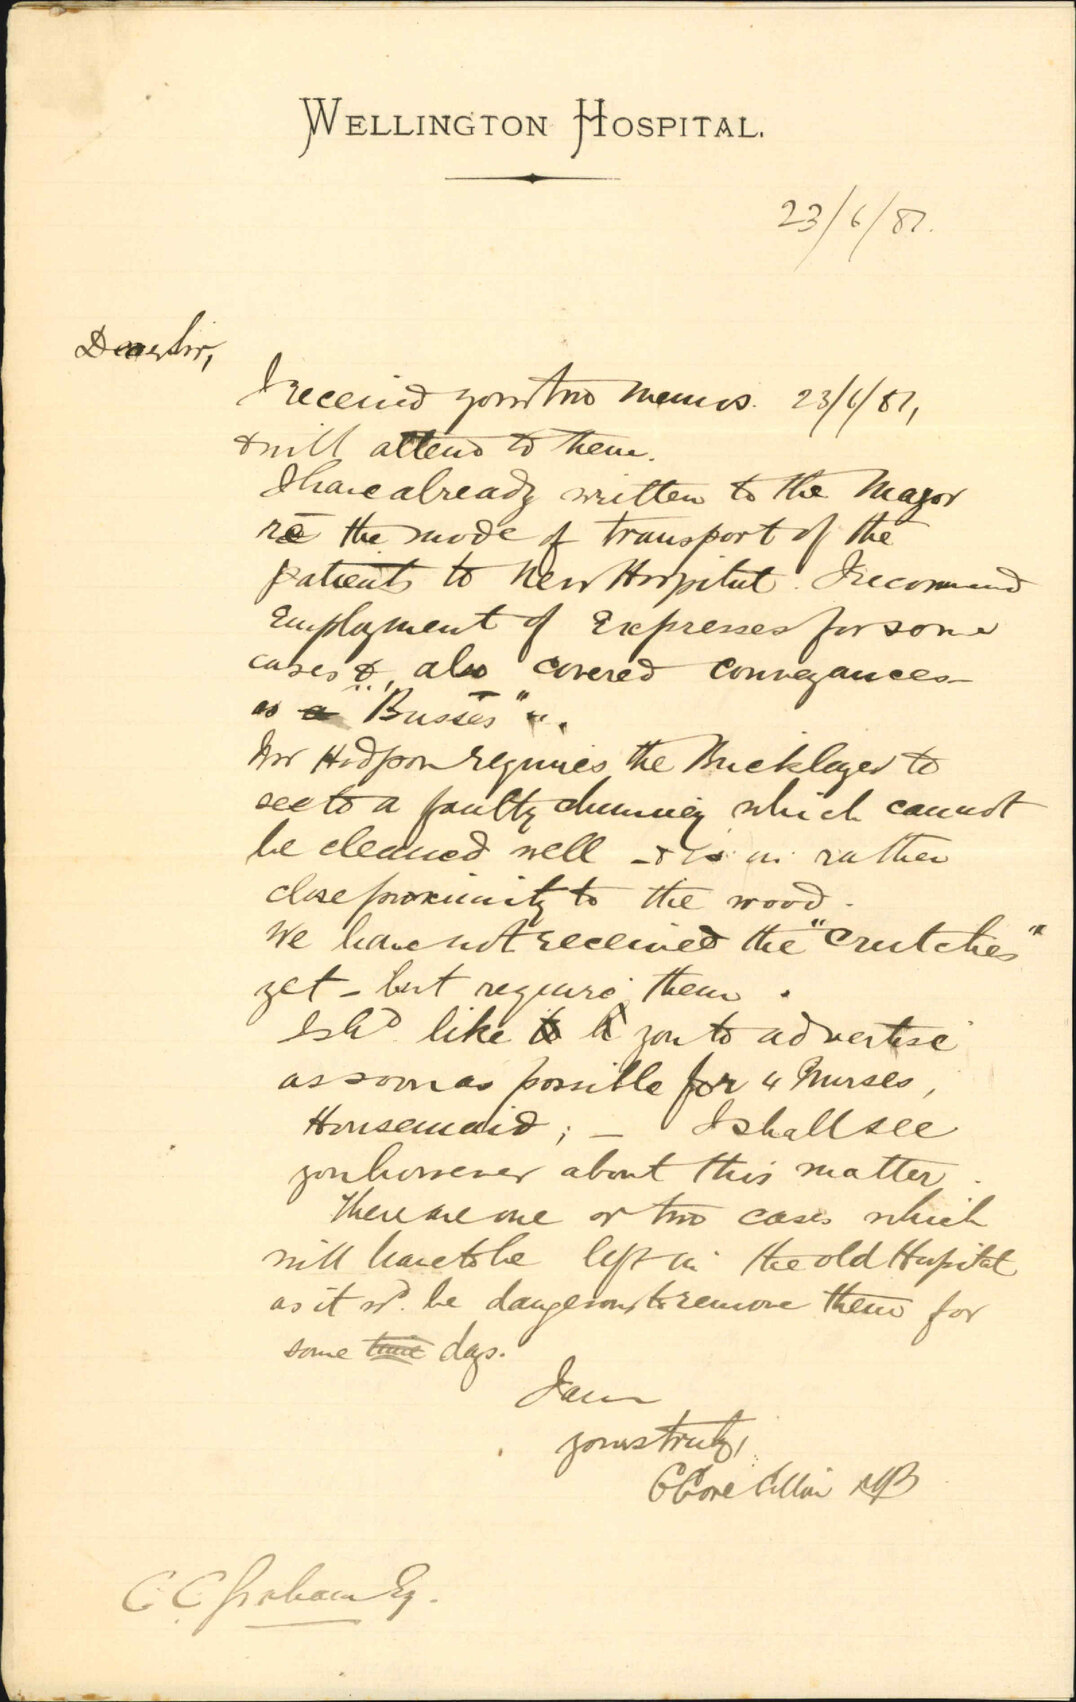 WELLINGTON HOSPITAL.
23/6/81.
Dear Sir,
I received your two memos. 23/6/81,
& will attend to them.
I have already written to the Mayor
re the mode of transport of the
patients to New Hospital. I recommend
Employment of Expresses for some
cases & also covered conveyances
as a "Busses".
Mr Hodgson requires the Bricklayer to
see to a faulty chimney which cannot
be cleaned well - & is in rather
close proximity to the wood.
We have not received the "Crutches"
yet - but require them.
I shd like you to advertise
as soon as possible for 4 Nurses,
Housemaid; - I shall see
you however about this matter.
There are one or two cases which
will have to be left in the old Hospital
as it wd. be dangerous to remove them for
some time days.
I am
yours truly,
MB
C. C. Graham Esq.